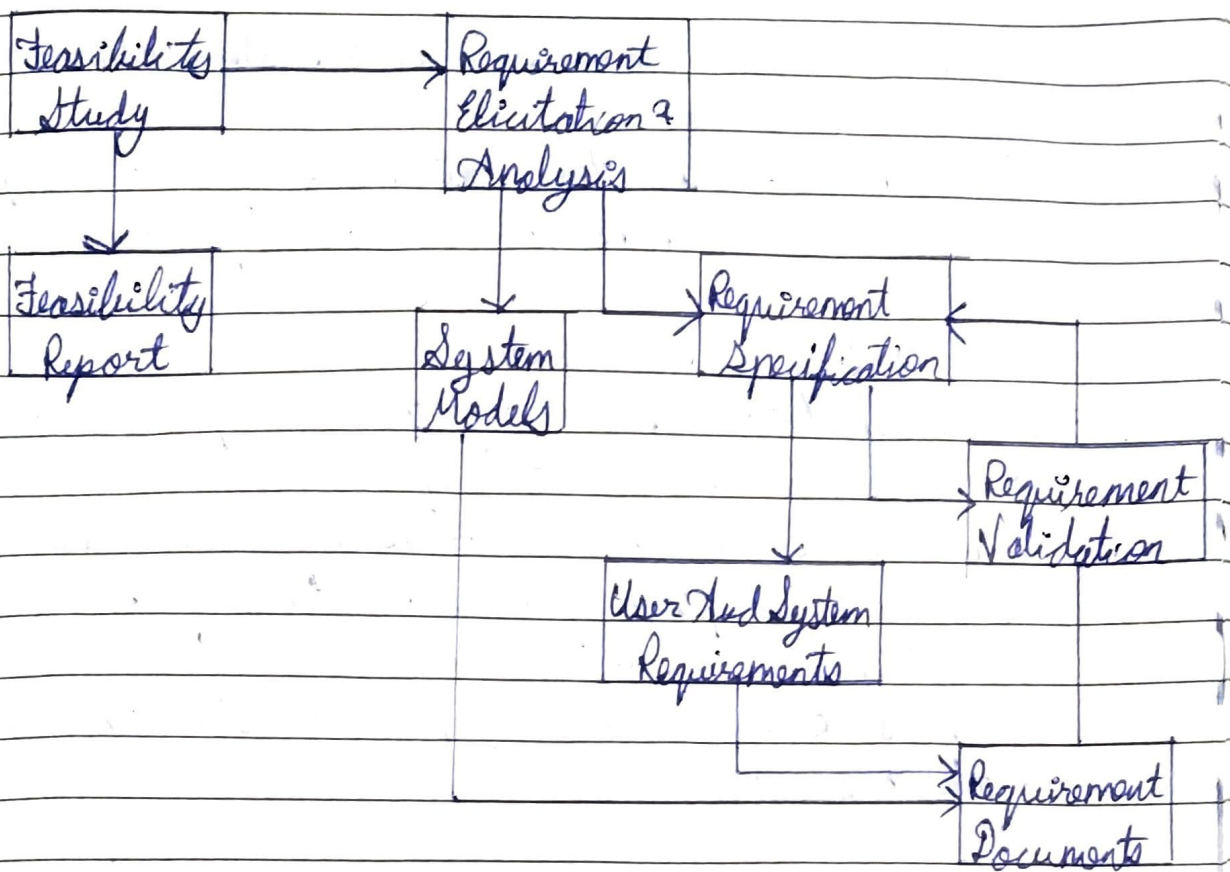 Feasibility
Study
Requirement
Elicitation &
Analysis
Feasibility
Report
System
Models
Requirement
Specification
Requirement
Validation
User And System
Requirements
Requirement
Documents